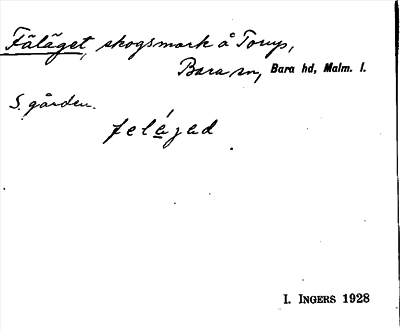 Fäläget, skogsmark å Torup,
Bara sn, Bara hd, Malm. l.
S. gården.
feláʒad
I. INGERS 1928